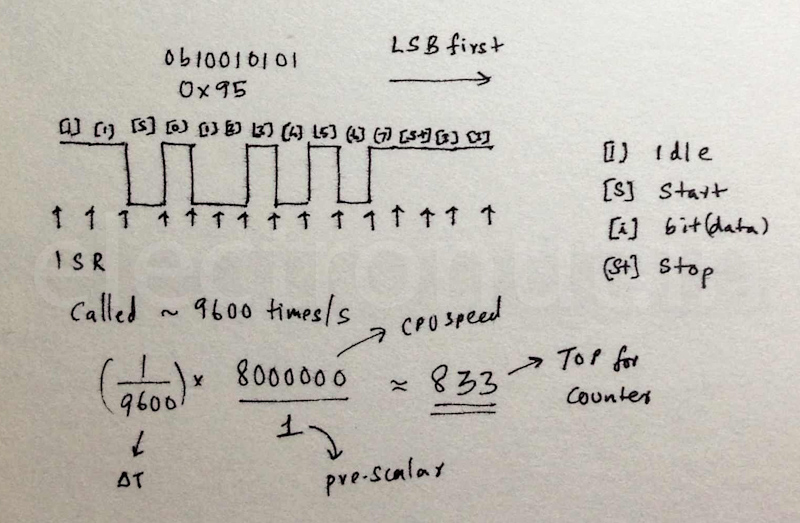 0b10010101
LSB first
0x95
[I] [I] [S] [0] [1] [2] [3] [4] [5] [6] [7] [St] [I] [I]
[I] Idle
[S] Start
[i] bit(data)
[St] Stop
ISR
Called ~ 9600 times/s
CPU speed
(1/9600) × 8000000/1 ≈ 833
TOP for
counter
ΔT
pre-scalar